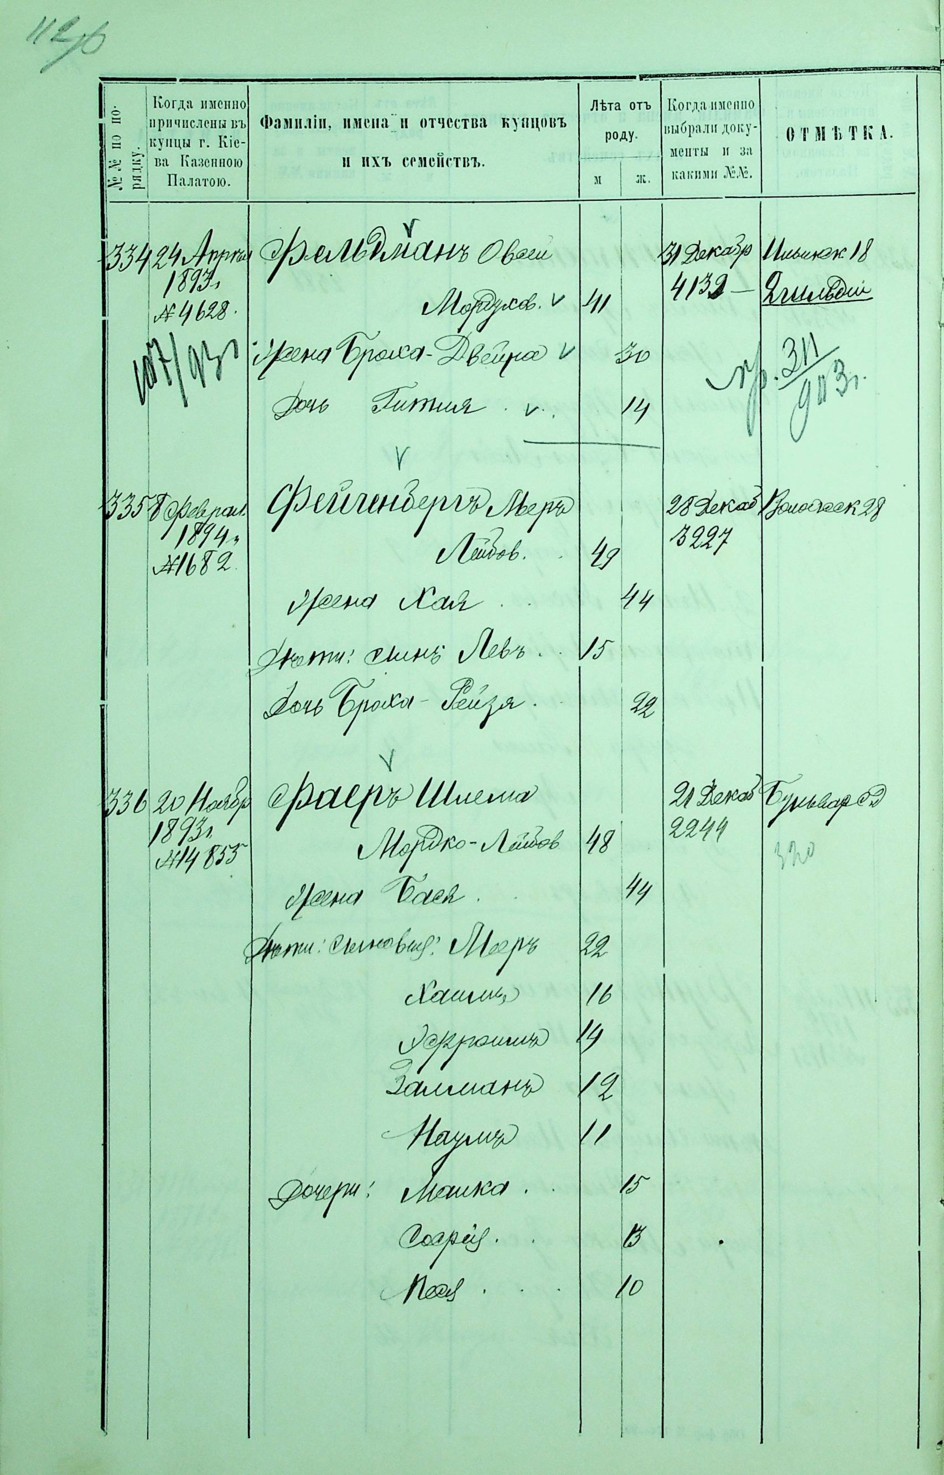 112
№№ по порядку.
Когда именно причислены въ купцы г. Кіева Казенною Палатою.
Фамиліи, имена и отчества купцовъ и ихъ семействъ.
Лѣта отъ роду.
м
ж.
Когда именно выбрали документы и за какими №№.
ОТМѢТКА.
334 24 Апрѣля Фельдманъ Овсей 31 Декабр Ильинск 18
1893 г Мордухов. 41 4132 2 гильдіи
№ 4628.
107/93 г Жена Броха-Двейра 30 пр. 311/903 г.
Дочь Гитля 14
335 8 Феврал. Фейгенбергъ Меръ 28 Декаб Волошск 28
1894 г Лейбов. 49 3227
№ 1682
Жена Хая 44
Дѣти: сынъ Левъ 15
Дочь Броха-Рейзя 22
336 20 Ноябр Фаеръ Шлема 21 Декаб Бульвар
1893 г Мордко-Лейбов 48 2244 320
№ 14855
Жена Бася 44
Дѣти: сыновья: Меръ 22
Хаимъ 16
Эфроимъ 14
Залманъ 12
Наумъ 11
Дочери: Малка 15
Софія 13
Песя 10